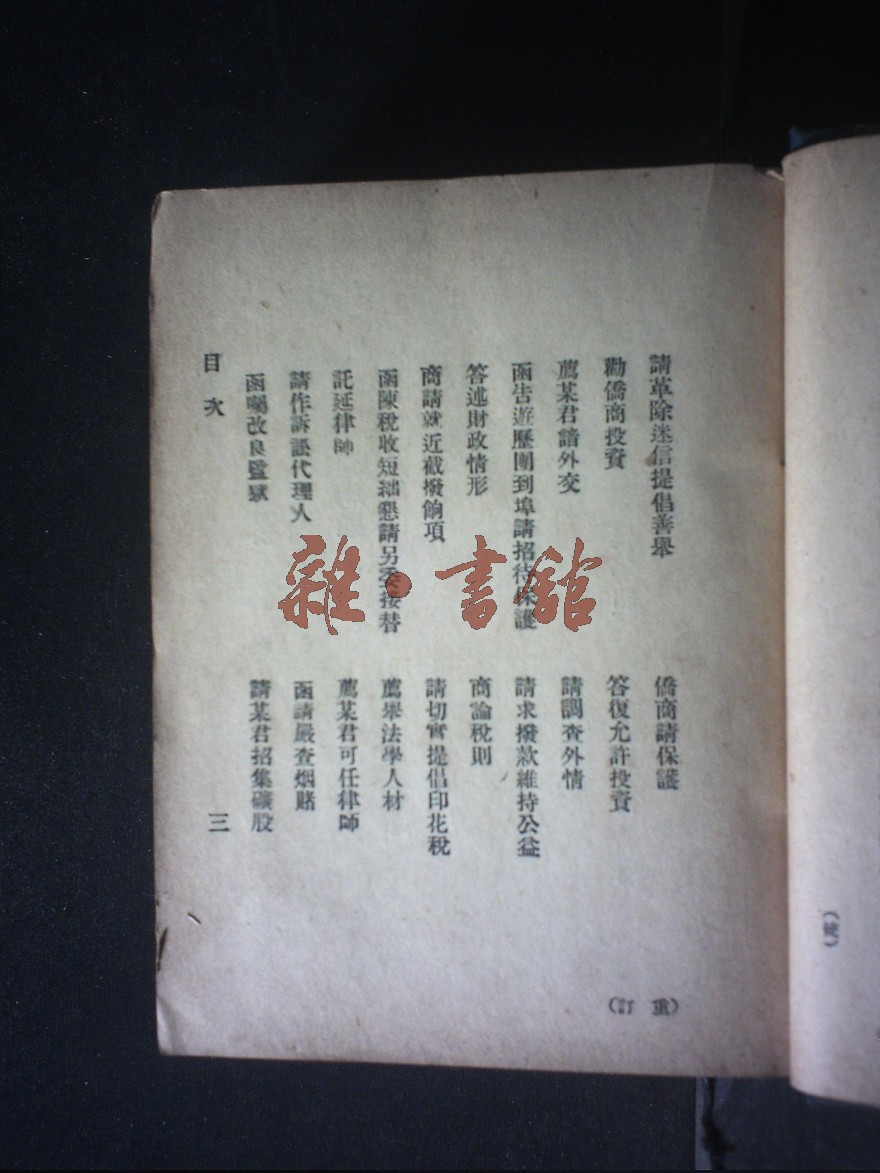 請革除迷信提倡善舉
僑商請保護
勸僑商投資
答復允許投資
薦某君諳外交
請調查外情
函告遊歷團到埠請招待保護
請求撥款維持公益
答述財政情形
商論稅則
商請就近截撥餉項
請切實提倡印花稅
函陳稅收短絀懇請另委接替
薦舉法學人材
託延律師
薦某君可任律師
請作訴訟代理人
函請嚴查烟賭
函囑改良監獄
請某君招集礦股
目次
三
(重訂)
雜·書館